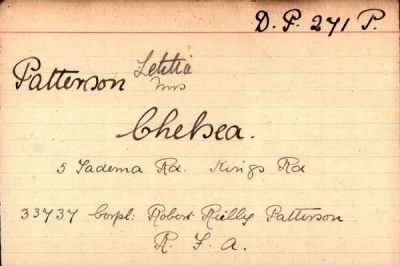 D. P. 271 P.
Patterson Letitia
Mrs
Chelsea.
5 Tadema Rd. Kings Rd
33737 Corpl: Robert Reilly Patterson
R. F. A.